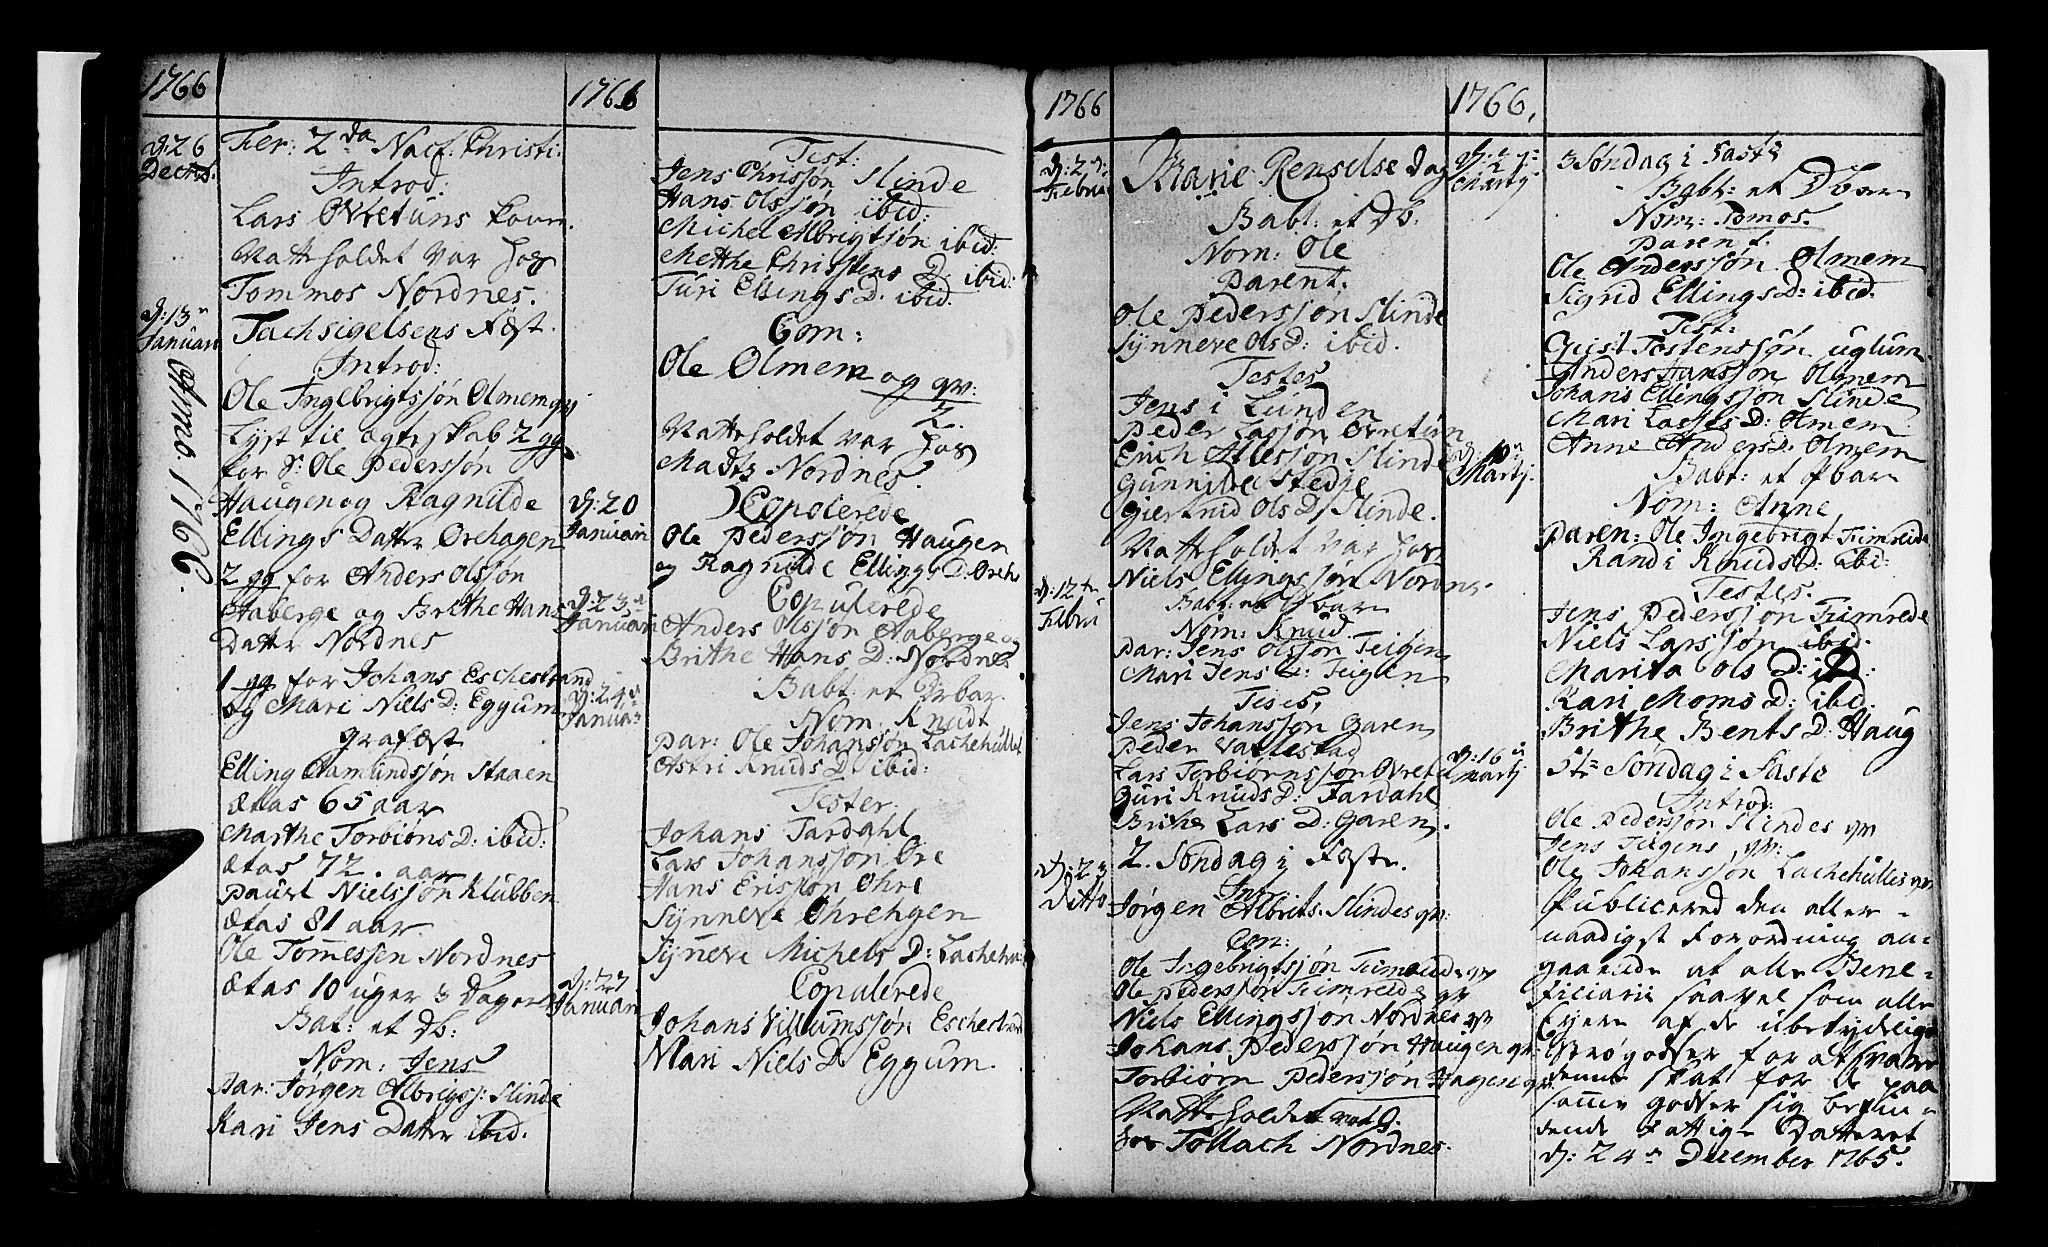 1766
d: 26
Decbr.
Fer: 2da Nat: Christi:
Introd:
Lars Øvretuns kone
Natteholdet var hos
Tommos Nordnes.
d: 13
Januari
Anno 1766
Tachsigelsens Fæst.
Introd:
Ole Ingelbrigtsjøn Olmem qv
Lyst til ægteskab 2 gg
for S: Ole Pedersjøn
Haugen og Ragnilde
Ellings Datter Orehagen
2 gg for Anders Olsjøn
Aaberge og Brithe Hans
Datter Nordnes
1 gg for Johans Eschestrand
og Mari Niels D: Eggum
grafæst
Elling Aamundsjøn Staaen
ætas 65 aar
Marthe Torbiøns D: ibid:
ætas 72. aar
Pauel Nielssjøn Klubben
ætas 81 aar.
Ole Tomessen Nordnes
ætas 10 uger 3 Dager
Bat: et db:
Nom: Jens
Par: Jørgen Albrigsj: Slinde
Kari Jens Datter ibid.
1766
Test:
Jens Chrisjøn Slinde
Hans Olsjøn ibid:
Michel Albrigtsjøn ibid:
Mette Christens D. ibid:
Turi Ellings D. ibid.
Com:
Ole Olmem og qv:
2.
Natteholdet var hos
Madtz Nordnes.
d: 20
Januari
Copulerede
Ole Pedersjøn Haugen
og Ragnilde Ellings D: Oreh
d: 23
Januari
Copulerede
Anders Olsjøn Aaberge og
Brithe Hans D: Nordnes
d: 24
Januar
Babt: et Dbar
Nom. Knudt
Par: Ole Johansjøn Lachehulle
Astri Knuds D. ibid:
Tester.
Johans Fardahl
Lars Johansjøn Øre
Hans Erisjøn Ohre
Synneve Ohrehgen
Synneve Michels D: Lachehu
d: 27
Januari
Copulerede
Johans Villumsjøn Eschestrand
Mari Niels D. Eggum.
1766
d: 2
Febru
Marie Renselse Dag
Babt: et db.
Nom: Ole
Parent.
Ole Pedersjøn Slinde
Synneve Ols D: ibid.
Testes
Jens i Lunden
Peder Lasjøn Øvretun
Erich Slinde
Gunnilde Stedje
Giertrud Ols D: Slinde.
Natteholdet var hos
Niels Ellingssjøn Nordnes.
d: 12
Febru
Babt: et dbar
Nom: Knud.
Par: Jens Olsjøn Teigen
Mari Jens D: Teigen
Testes,
Jens Johansjøn Garen
Peder Vallestad
Lars Torbiørnsjøn Øvretu
Guri Knuds D: Fardahl
Brithe Lars D: Garen.
d: 23
Ditto
2. Søndag i Fæste.
Intr.
Jørgen Albrits: Slindes qv:
Con:
Ole Ingebrigtsjøn Fimreide qv
Ole Pedersjøn Fimreide qv
Niels Ellingsjøn Nordnes qv
Johans Pedersjøn Haugen qv:
Torbiørn Pedersjøn Hagen qv.
Natteholdet
hos Tollach Nordnes.
1766,
d: 2
Martj
3 Søndag i Faste
Babt: et Dbar
Nom: Tomos.
Parent.
Ole Andersjøn Olmem
Sigrid Ellings D: ibid:
Test:
Christ: Tostensjøn Uglum
Anders Hansjøn Olmem
Johans Ellingsjøn Slinde
Mari Lasses D: Olmem
Anne Anders D: Olmem
d: 10
Martj.
Babt: et dbar
Nom: Anne
Paren: Ole Ingebrigt Fimreide
Randi Knuds D: ibid:
Testes.
Jens Pedersjøn Fimrede
Niels Larsjøn ibid.
Marita Ols D: ibid.
Kari Moms D: ibid.
Brithe Bents D: Haug
d: 16
Martj
5te Søndag i Faste
Introd:
Ole Pedersjøn Slindes qv
Jens Teigens qv:
Ole Johansjøn Lachehulles qv
Publicered den aller-
naadigst Forordning an-
gaaende at alle Bene-
ficiarii saavel som alle
Ejere af de ubetydelige
Strøgodser for at svare
denne skat for de paa
samme godser sig befin-
dende fattige Datteret
d: 24 December 1765.